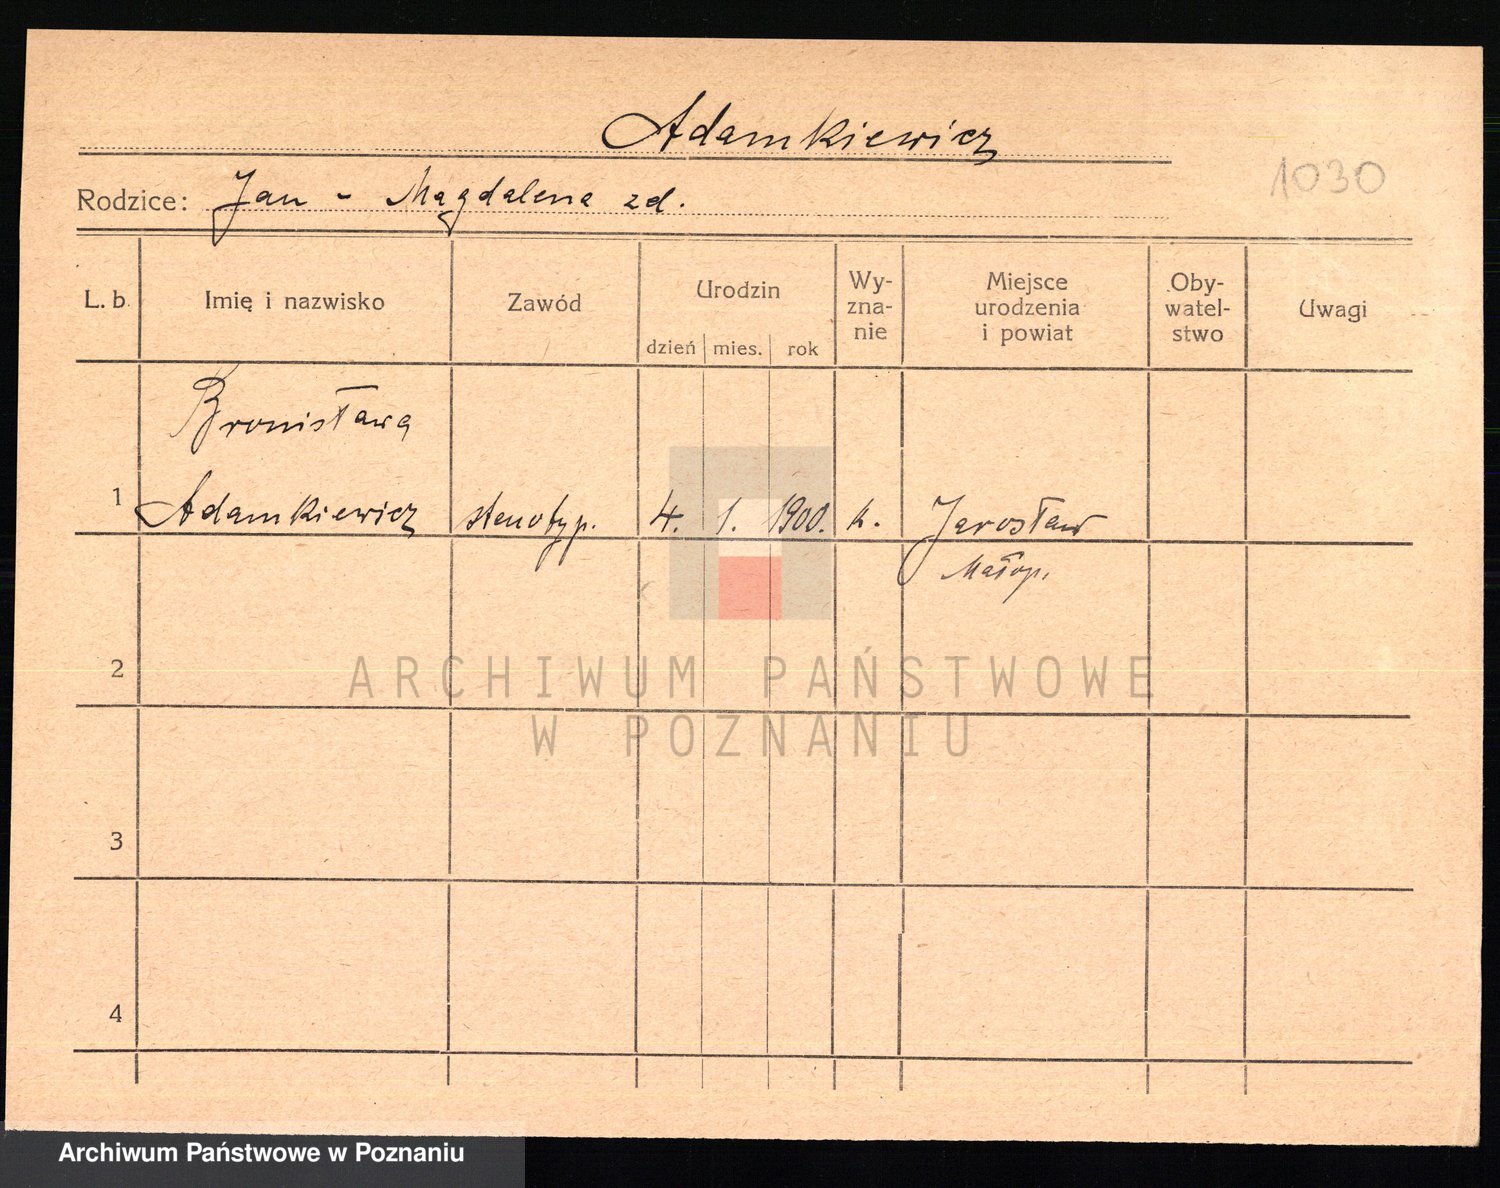 Adamkiewicz
1030
Rodzice: Jan - Magdalena zd.
L. b. Imię i nazwisko Zawód Urodzin dzień mies. rok Wy-zna-nie Miejsce urodzenia i powiat Oby-watel-stwo Uwagi
Bronisława
1 Adamkiewicz stenotyp. 4. 1. 1900. k. Jarosław
Małop.
2
ARCHIWUM PAŃSTWOWE
W POZNANIU
3
4
Archiwum Państwowe w Poznaniu